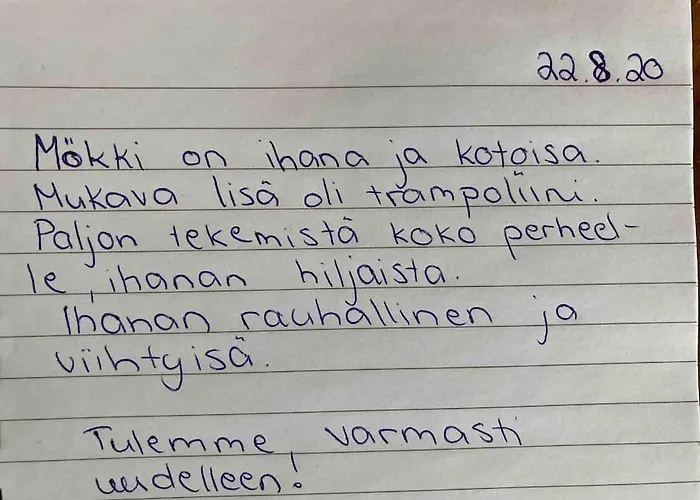 22.8.20
Mökki on ihana ja kotoisa.
Mukava lisä oli trampoliini.
Paljon tekemistä koko perheel-
le, ihanan hiljaista.
Ihanan rauhallinen ja
viihtyisä.
Tulemme varmasti
uudelleen!